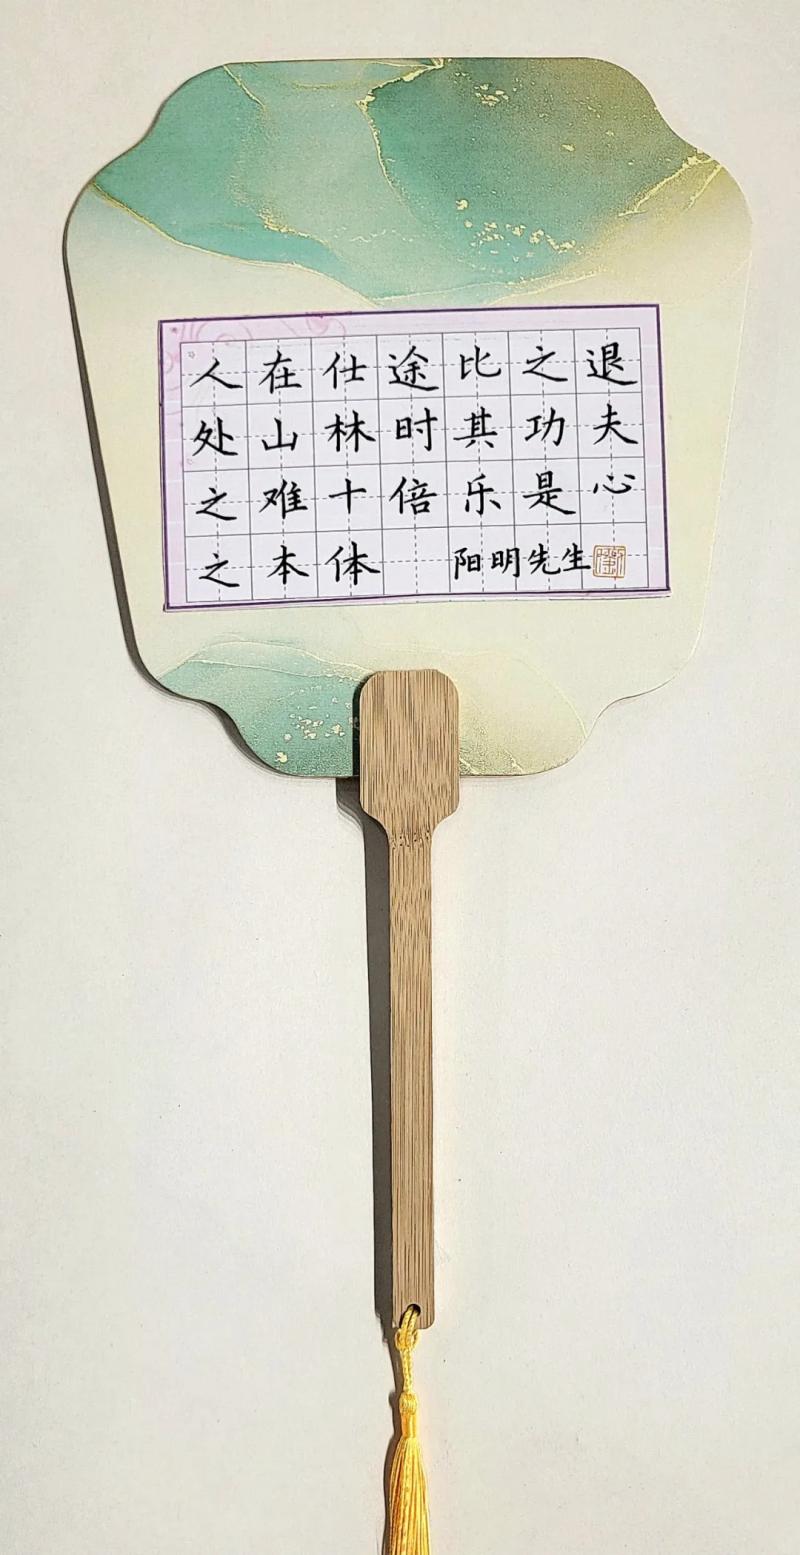 人在仕途比之退
处山林时其功夫
之难十倍乐是心
之本体 阳明先生